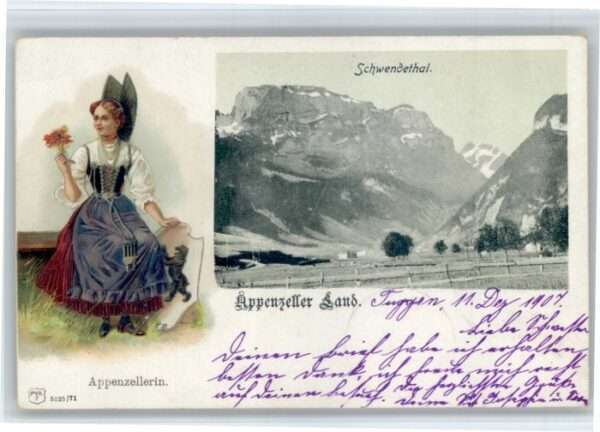 Schwendethal.
Appenzeller Land. Tuggen, 11. Dez 1907.
Liebe Schwester
Deinen Brief habe ich erhalten
besten Dank, ich freue mich recht
auf deinen besuch. Die herzlichsten Grüße
deine
Appenzellerin.
5025/71